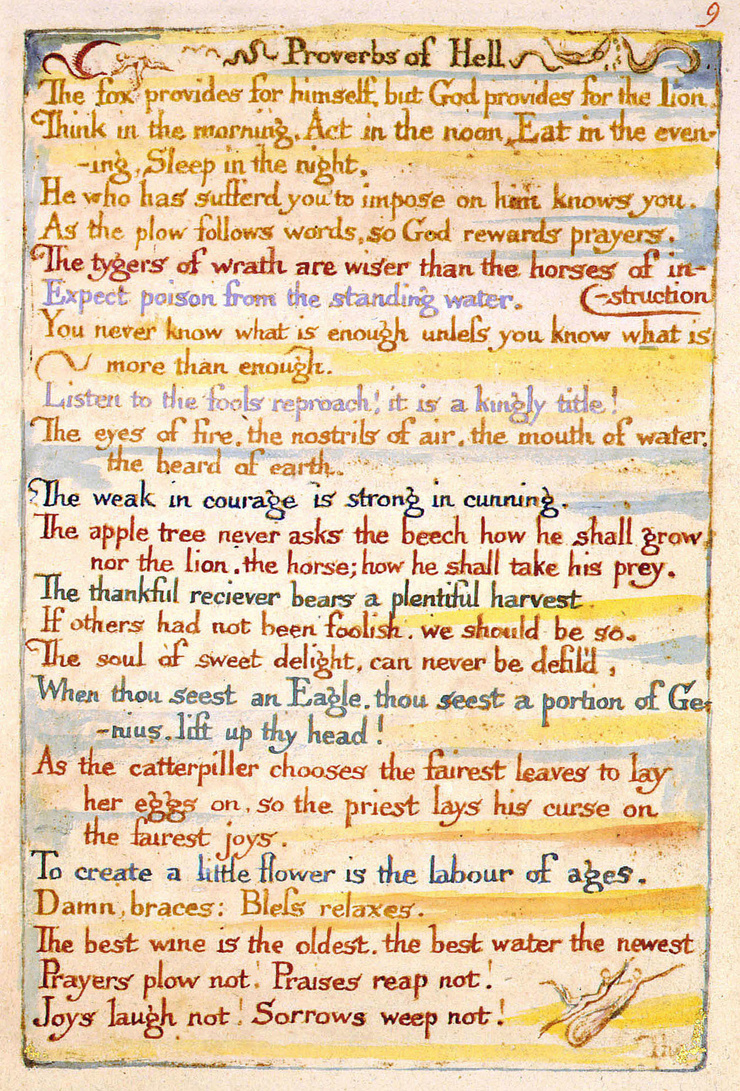 9
Proverbs of Hell
The fox provides for himself, but God provides for the lion.
Think in the morning, Act in the noon, Eat in the even-
-ing, Sleep in the night,
He who has sufferd you to impose on him knows you.
As the plow follows words, so God rewards prayers.
The tygers of wrath are wiser than the horses of in-
-struction
Expect poison from the standing water.
You never know what is enough unless you know what is
more than enough.
Listen to the fools reproach! it is a kingly title!
The eyes of fire, the nostrils of air, the mouth of water,
the beard of earth.
The weak in courage is strong in cunning.
The apple tree never asks the beech how he shall grow,
nor the lion, the horse; how he shall take his prey.
The thankful reciever bears a plentiful harvest.
If others had not been foolish, we should be so.
The soul of sweet delight, can never be defil'd,
When thou seest an Eagle, thou seest a portion of Ge-
-nius. lift up thy head!
As the catterpiller chooses the fairest leaves to lay
her eggs on, so the priest lays his curse on
the fairest joys.
To create a little flower is the labour of ages.
Damn, braces: Bless relaxes.
The best wine is the oldest, the best water the newest
Prayers plow not! Praises reap not!
Joys laugh not! Sorrows weep not!
The